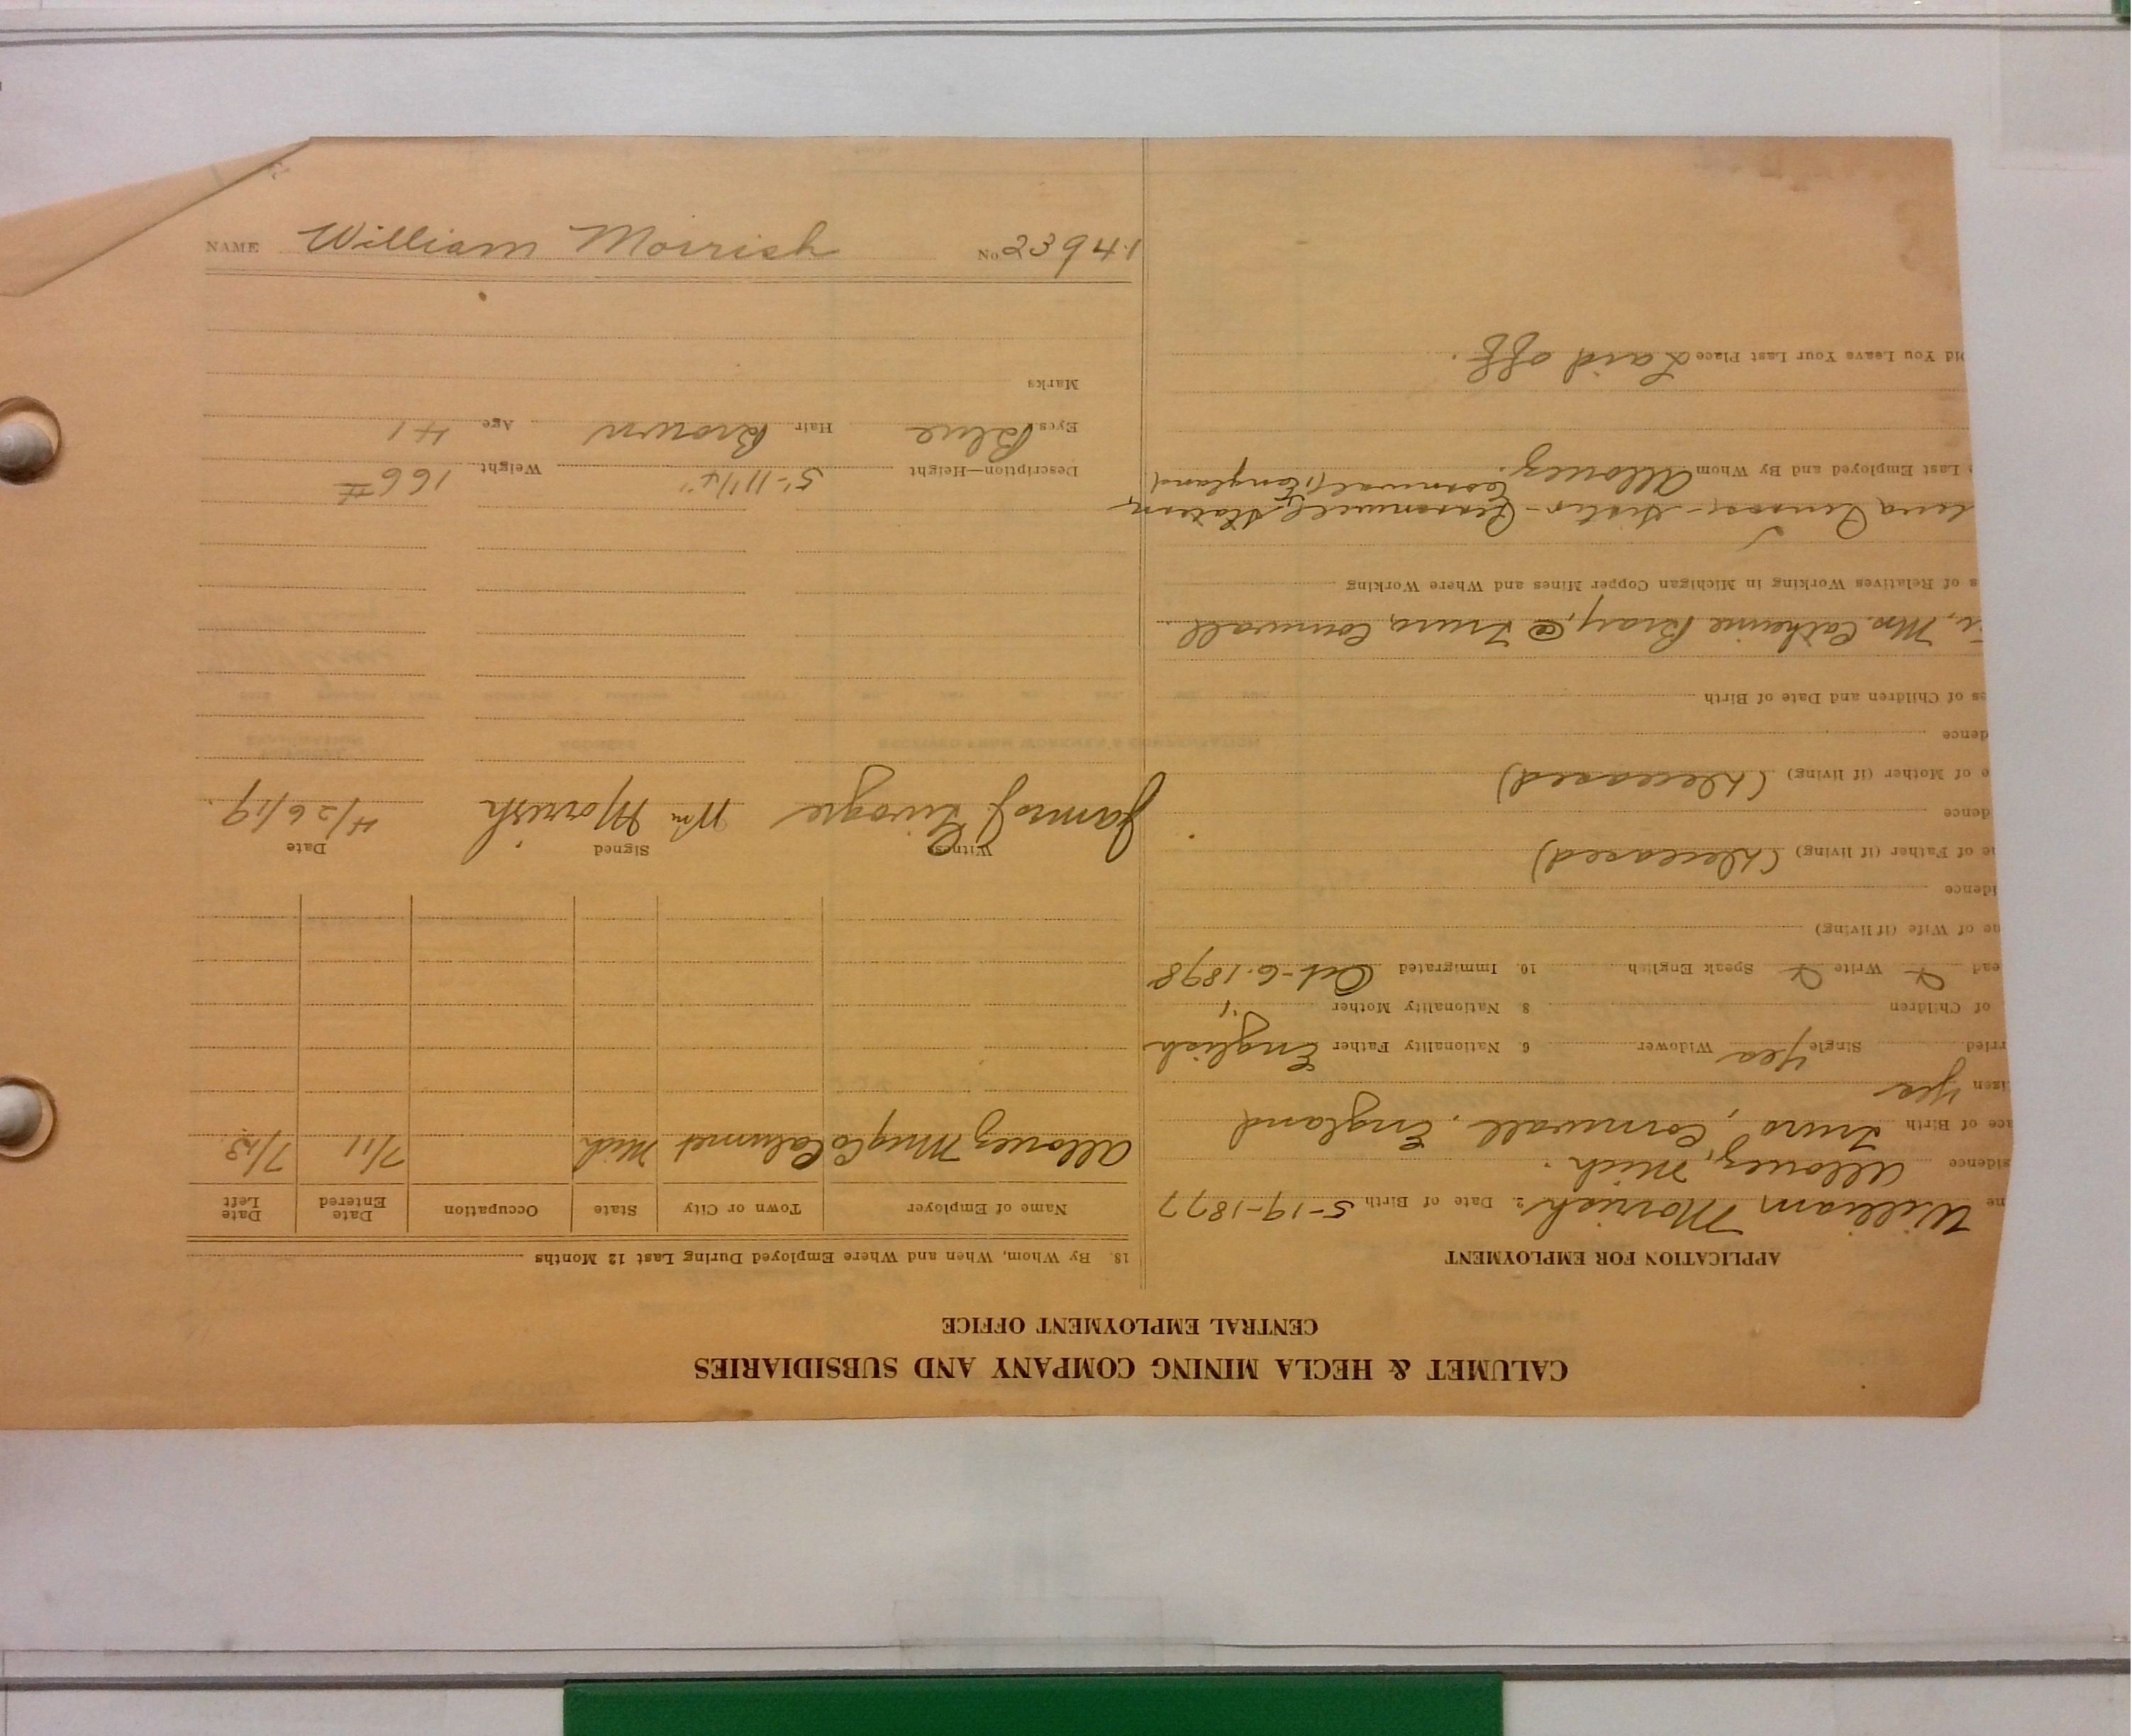 CALUMET & HECLA MINING COMPANY AND SUBSIDIARIES
CENTRAL EMPLOYMENT OFFICE
APPLICATION FOR EMPLOYMENT
ne William Morrish 2. Date of Birth 5-19-1877
sidence Allouez, Mich.
ace of Birth Truro, Cornwall, England
izen yes
rried Single yes Widower 6 Nationality Father English
of Children 8 Nationality Mother "
ead Write Speak English 10. Immigrated Oct-6-1898
ne of Wife (if living)
idence
ne of Father (if living) (Deceased)
dence
e of Mother (if living) (Deceased)
dence
es of Children and Date of Birth
Mrs. Catherine Bray, @ Truro, Cornwall
s of Relatives Working in Michigan Copper Mines and Where Working
Penrose - Sister -
Cornwall, England
Last Employed and By Whom Allouez.
id You Leave Your Last Place Laid off.
18. By Whom, When and Where Employed During Last 12 Months
Name of Employer Town or City State Occupation Date Entered Date Left
Allouez Mng Co Calumet Mich 7/11 7/18
Witness Signed Date
James J. Wm Morrish 4/26/19.
Description—Height 5'-11 1/4" Weight 166 #
Eyes Blue Hair Brown Age 41
Marks
NAME William Morrish No 23941